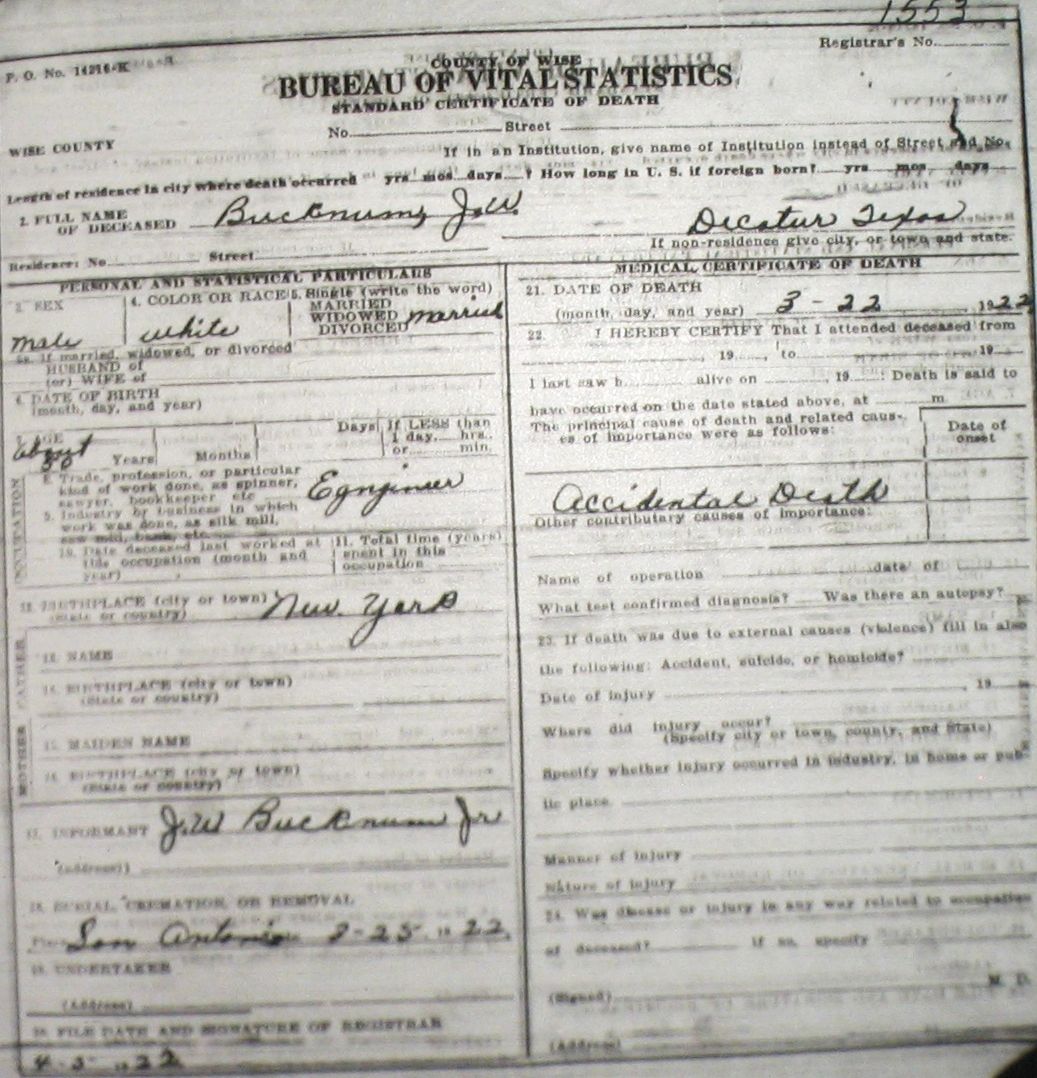 1553
Registrar's No.
P. O. No. 14216-K
COUNTY OF WISE
BUREAU OF VITAL STATISTICS
STANDARD CERTIFICATE OF DEATH
No. Street
WISE COUNTY
If in an Institution, give name of Institution instead of Street and No.
Length of residence in city where death occurred yrs mos. days ? How long in U. S. if foreign born? yrs mos days
2. FULL NAME OF DECEASED Bucknum, J.W. Decatur Texas
If non-residence give city, or town and state.
Residence: No. Street
PERSONAL AND STATISTICAL PARTICULARS
3. SEX male
4. COLOR OR RACE white
5. Single (write the word)
MARRIED
WIDOWED
DIVORCED married
5a. If married, widowed, or divorced
HUSBAND of
(or) WIFE of
6. DATE OF BIRTH
(month, day, and year)
AGE about Years Months Days If LESS than
1 day, hrs.
or min.
OCCUPATION
8. Trade, profession, or particular
kind of work done, as spinner,
sawyer, bookkeeper etc Egnjineer
9. Industry or business in which
work was done, as silk mill,
saw mill, bank, etc.
10. Date deceased last worked at
this occupation (month and
year)
11. Total time (years)
spent in this
occupation
12. BIRTHPLACE (city or town) New York
(State or country)
FATHER
13. NAME
14. BIRTHPLACE (city or town)
(State or country)
MOTHER
15. MAIDEN NAME
16. BIRTHPLACE (city or town)
(State or country)
17. INFORMANT J.W Bucknum Jr
(Address)
18. BURIAL, CREMATION, OR REMOVAL
Place San Antonio 3-25, 1922
19. UNDERTAKER
(Address)
20. FILE DATE AND SIGNATURE OF REGISTRAR
4-5 1922
MEDICAL CERTIFICATE OF DEATH
21. DATE OF DEATH
(month, day, and year) 3-22 1922
22. I HEREBY CERTIFY That I attended deceased from
, 19 , to 19
I last saw h alive on , 19 : Death is said to
have occurred on the date stated above, at m
The principal cause of death and related causes of importance were as follows:
Date of onset
Accidental Death
Other contributory causes of importance:
Name of operation date of
What test confirmed diagnosis? Was there an autopsy?
23. If death was due to external causes (violence) fill in also
the following: Accident, suicide, or homicide?
Date of injury , 19
Where did injury occur?
(Specify city or town, county, and State)
Specify whether injury occurred in industry, in home or pub-
lic place.
Manner of injury
Nature of injury
24. Was disease or injury in any way related to occupation
of deceased? If so, specify
(Signed) M. D.
(Address)